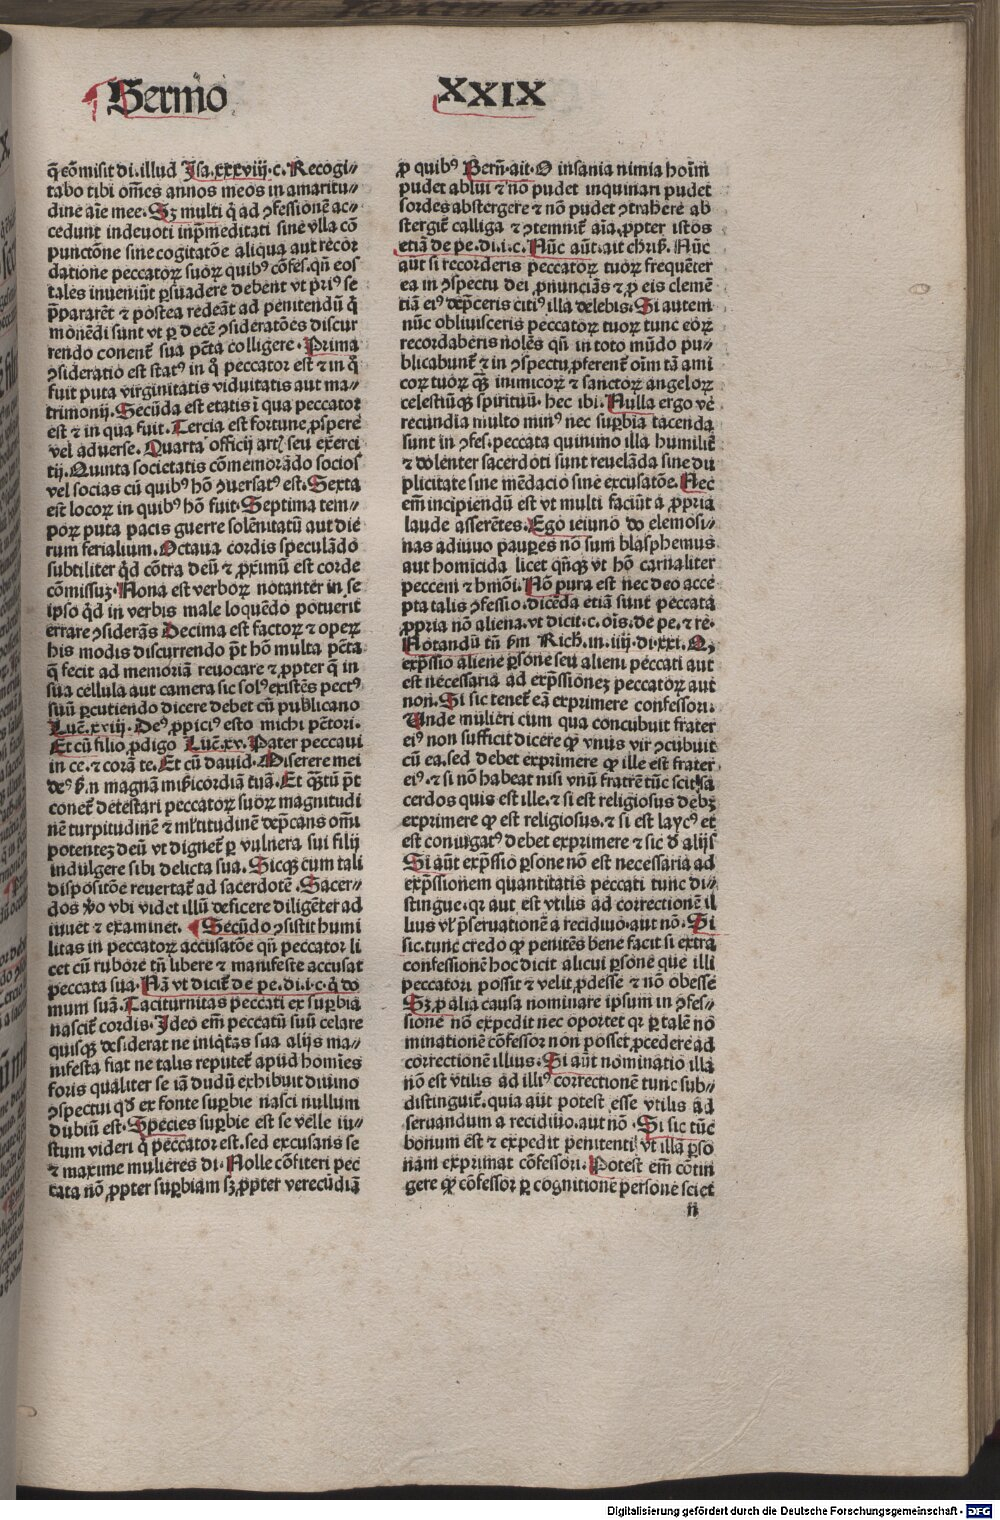 Sermo
XXIX
q̄ cōmisit di. illud Isa. xxxviij. c. Recogi⸗
tabo tibi om̄es annos meos in amaritu⸗
dine aīe mee. Sz multi q̄ ad ꝯfessionē ac⸗
cedunt indeuoti inp̄meditati sine vlla cō
punctōne sine cogitatōe aliqua aut recor
datione peccatoꝝ suoꝝ quibꝰ cōfes. qn̄ eos
tales inueniūt ꝑsuadere debent vt priꝰ se
p̄pararēt ⁊ postea redeāt ad penitendū q̄
monēdi sunt vt ꝑ decē ꝯsideratōes discur
rendo conent̄ sua pctā colligere. Prima
ꝯsideratio est statꝰ in q̄ peccator est ⁊ in q̄
fuit puta virginitatis viduitatis aut ma⸗
trimonij. Secūda est etatis ī qua peccator
est ⁊ in qua fuit. Tercia est fortune ꝓspere
vel aduerse. Quarta officij artꝭ seu exerci
tij. Quinta societatis cōmemorādo socios
vel socias cū quibꝰ hō ꝯuersatꝰ est. Sexta
est locoꝝ in quibꝰ hō fuit. Septima tem⸗
poꝝ puta pacis guerre solēnitatū aut die
rum ferialium. Octaua cordis speculādo
subtiliter qd̄ cōtra deū ⁊ ꝓximū est corde
cōmissuz. Nona est verboꝝ notanter in se
ipso qd̄ in verbis male loquēdo potuerit
errare ꝯsiderās Decima est factoꝝ ⁊ opeꝝ
his modis discurrendo p̄t hō multa pctā
q̄ fecit ad memoriā reuocare ⁊ ꝓpter q̄ in
sua cellula aut camera sic solꝰ existēs pectꝰ
suū ꝑcutiendo dicere debet cū publicano
Luc̄. xviij. Deꝰ ꝓpiciꝰ esto michi pctōri.
Et cū filio ꝓdigo Luc̄. xv. Pater peccaui
in ce. ⁊ corā te. Et cū dauid. Miserere mei
deꝰ ẜm magnā miẜicordiā tuā. Et q̄ꝫtū p̄t
conet̄ detestari peccatoꝝ suoꝝ magnitudi
nē turpitudinē ⁊ ml̄titudinē dep̄cans om̄i
potentez deū vt dignet̄ ꝑ vulnera sui filij
indulgere sibi delicta sua. Sicqꝫ cum tali
dispositōe reuertat̄ ad sacerdotē. Sacer⸗
dos v̄o vbi videt illū deficere diligēter ad
iuuet ⁊ examinet. Secūdo ꝯsistit humi
litas in peccatoꝝ accusatōe qn̄ peccator li
cet cū rubore tn̄ libere ⁊ manifeste accusat
peccata sua. Nā vt dicit̄ de pe. di. i. c. q̄ do
mum suā. Taciturnitas peccati ex suꝑbia
nascit̄ cordis. Ideo em̄ peccatū suū celare
quisqꝫ desiderat ne iniq̄tas sua alijs ma⸗
nifesta fiat ne talis reputet̄ apud homīes
foris qualiter se iā dudū exhibuit diuino
ꝯspectui qd̄ ex fonte suꝑbie nasci nullum
dubiū est. Species suꝑbie est se velle iu⸗
stum videri q̄ peccator est. sed excusans se
⁊ maxime mulieres di. Nolle cōfiteri pec
cata nō ꝓpter suꝑbiam sꝫ ꝓpter verecūdiā
ꝓ quibꝰ Bern̄. ait. O insania nimia hoīm
pudet ablui ⁊ nō pudet inquinari pudet
sordes abstergere ⁊ nō pudet ꝯtrahere ab
stergit̄ calliga ⁊ ꝯtemnit̄ aīa. ꝓpter istos
etiā de pe. di. i. c. Nūc aūt. ait chriẜ. Nūc
aūt si recorderis peccatoꝝ tuoꝝ frequēter
ea in ꝯspectu dei ꝓnunciās ⁊ ꝓ eis clemē
tiā eiꝰ dep̄ceris citiꝰ illa delebis. Si autem
nūc obliuisceris peccatoꝝ tuoꝝ tunc eoꝝ
recordaberis nolēs qn̄ in toto mūdo pu⸗
blicabunt̄ ⁊ in ꝯspectu ꝓferent̄ oīm tā ami
coꝝ tuoꝝ q̄ꝫ inimicoꝝ ⁊ sanctoꝝ angeloꝝ
celestiūqꝫ spirituū. hec ibi. Nulla ergo ve
recundia multo minꝰ nec suꝑbia tacenda
sunt in ꝯfes. peccata quinimo illa humilit̄
⁊ dolenter sacerdoti sunt reuelāda sine du
plicitate sine mēdacio sine excusatōe. Nec
em̄ incipiendū est vt multi faciūt a ꝓpria
laude asserētes. Ego ieiuno do elemosi⸗
nas adiuuo pauꝑes nō sum blasphemus
aut homicida licet qn̄qꝫ vt hō carnaliter
peccem ⁊ hm̄oi. Nō pura est nec deo acce
pta talis ꝯfessio. dicēda etiā sunt peccata
ꝓpria nō aliena. vt dicit̄. c. oīs. de pe. ⁊ re.
Notandū tn̄ ẜm Rich. in. iiij. di. xxi. Qꝫ
exp̄ssio aliene ꝑsone seu alieni peccati aut
est necessaria ad exp̄ssionez peccatoꝝ aut
non. Si sic tenet̄ eā exprimere confessori.
Unde mulieri cum qua concubuit frater
eiꝰ non sufficit dicere qꝫ vnus vir ꝯcubuit
cū ea. sed debet exprimere qꝫ ille est frater
eiꝰ. ⁊ si nō habeat nisi vnū fratrē tūc scit sa
cerdos quis est ille. ⁊ si est religiosus debꝫ
exprimere qꝫ est religiosus. ⁊ si est laycꝰ et
est coniugatꝰ debet exprimere ⁊ sic d̄ alijs
Si aūt exp̄ssio ꝑsone nō est necessaria ad
exp̄ssionem quantitatis peccati tunc di⸗
stingue. qr aut est vtilis ad correctionē il
lius vl̓ p̄seruationē a recidiuo. aut nō. Si
sic. tunc credo qꝫ penitēs bene facit si extra
confessionē hoc dicit alicui ꝑsone que illi
peccatori possit ⁊ velit ꝓdesse ⁊ nō obesse
Sꝫ ꝓ alia causa nominare ipsum in ꝯfes⸗
sione nō expedit nec oportet qr ꝑ talē no
minationē cōfessor non posset ꝓcedere ad
correctionē illius. Si aūt nominatio illa
nō est vtilis ad illiꝰ correctionē tunc sub⸗
distinguit̄. quia aūt potest esse vtilis ad
seruandum a recidiuo. aut nō. Si sic tūc
bonum est ⁊ expedit penitenti vt illā ꝑso
nam exprimat cōfessori. Potest em̄ cōtin
gere qꝫ cōfessor ꝑ cognitionē persone sciet
n
Digitalisierung gefördert durch die Deutsche Forschungsgemeinschaft - DFG